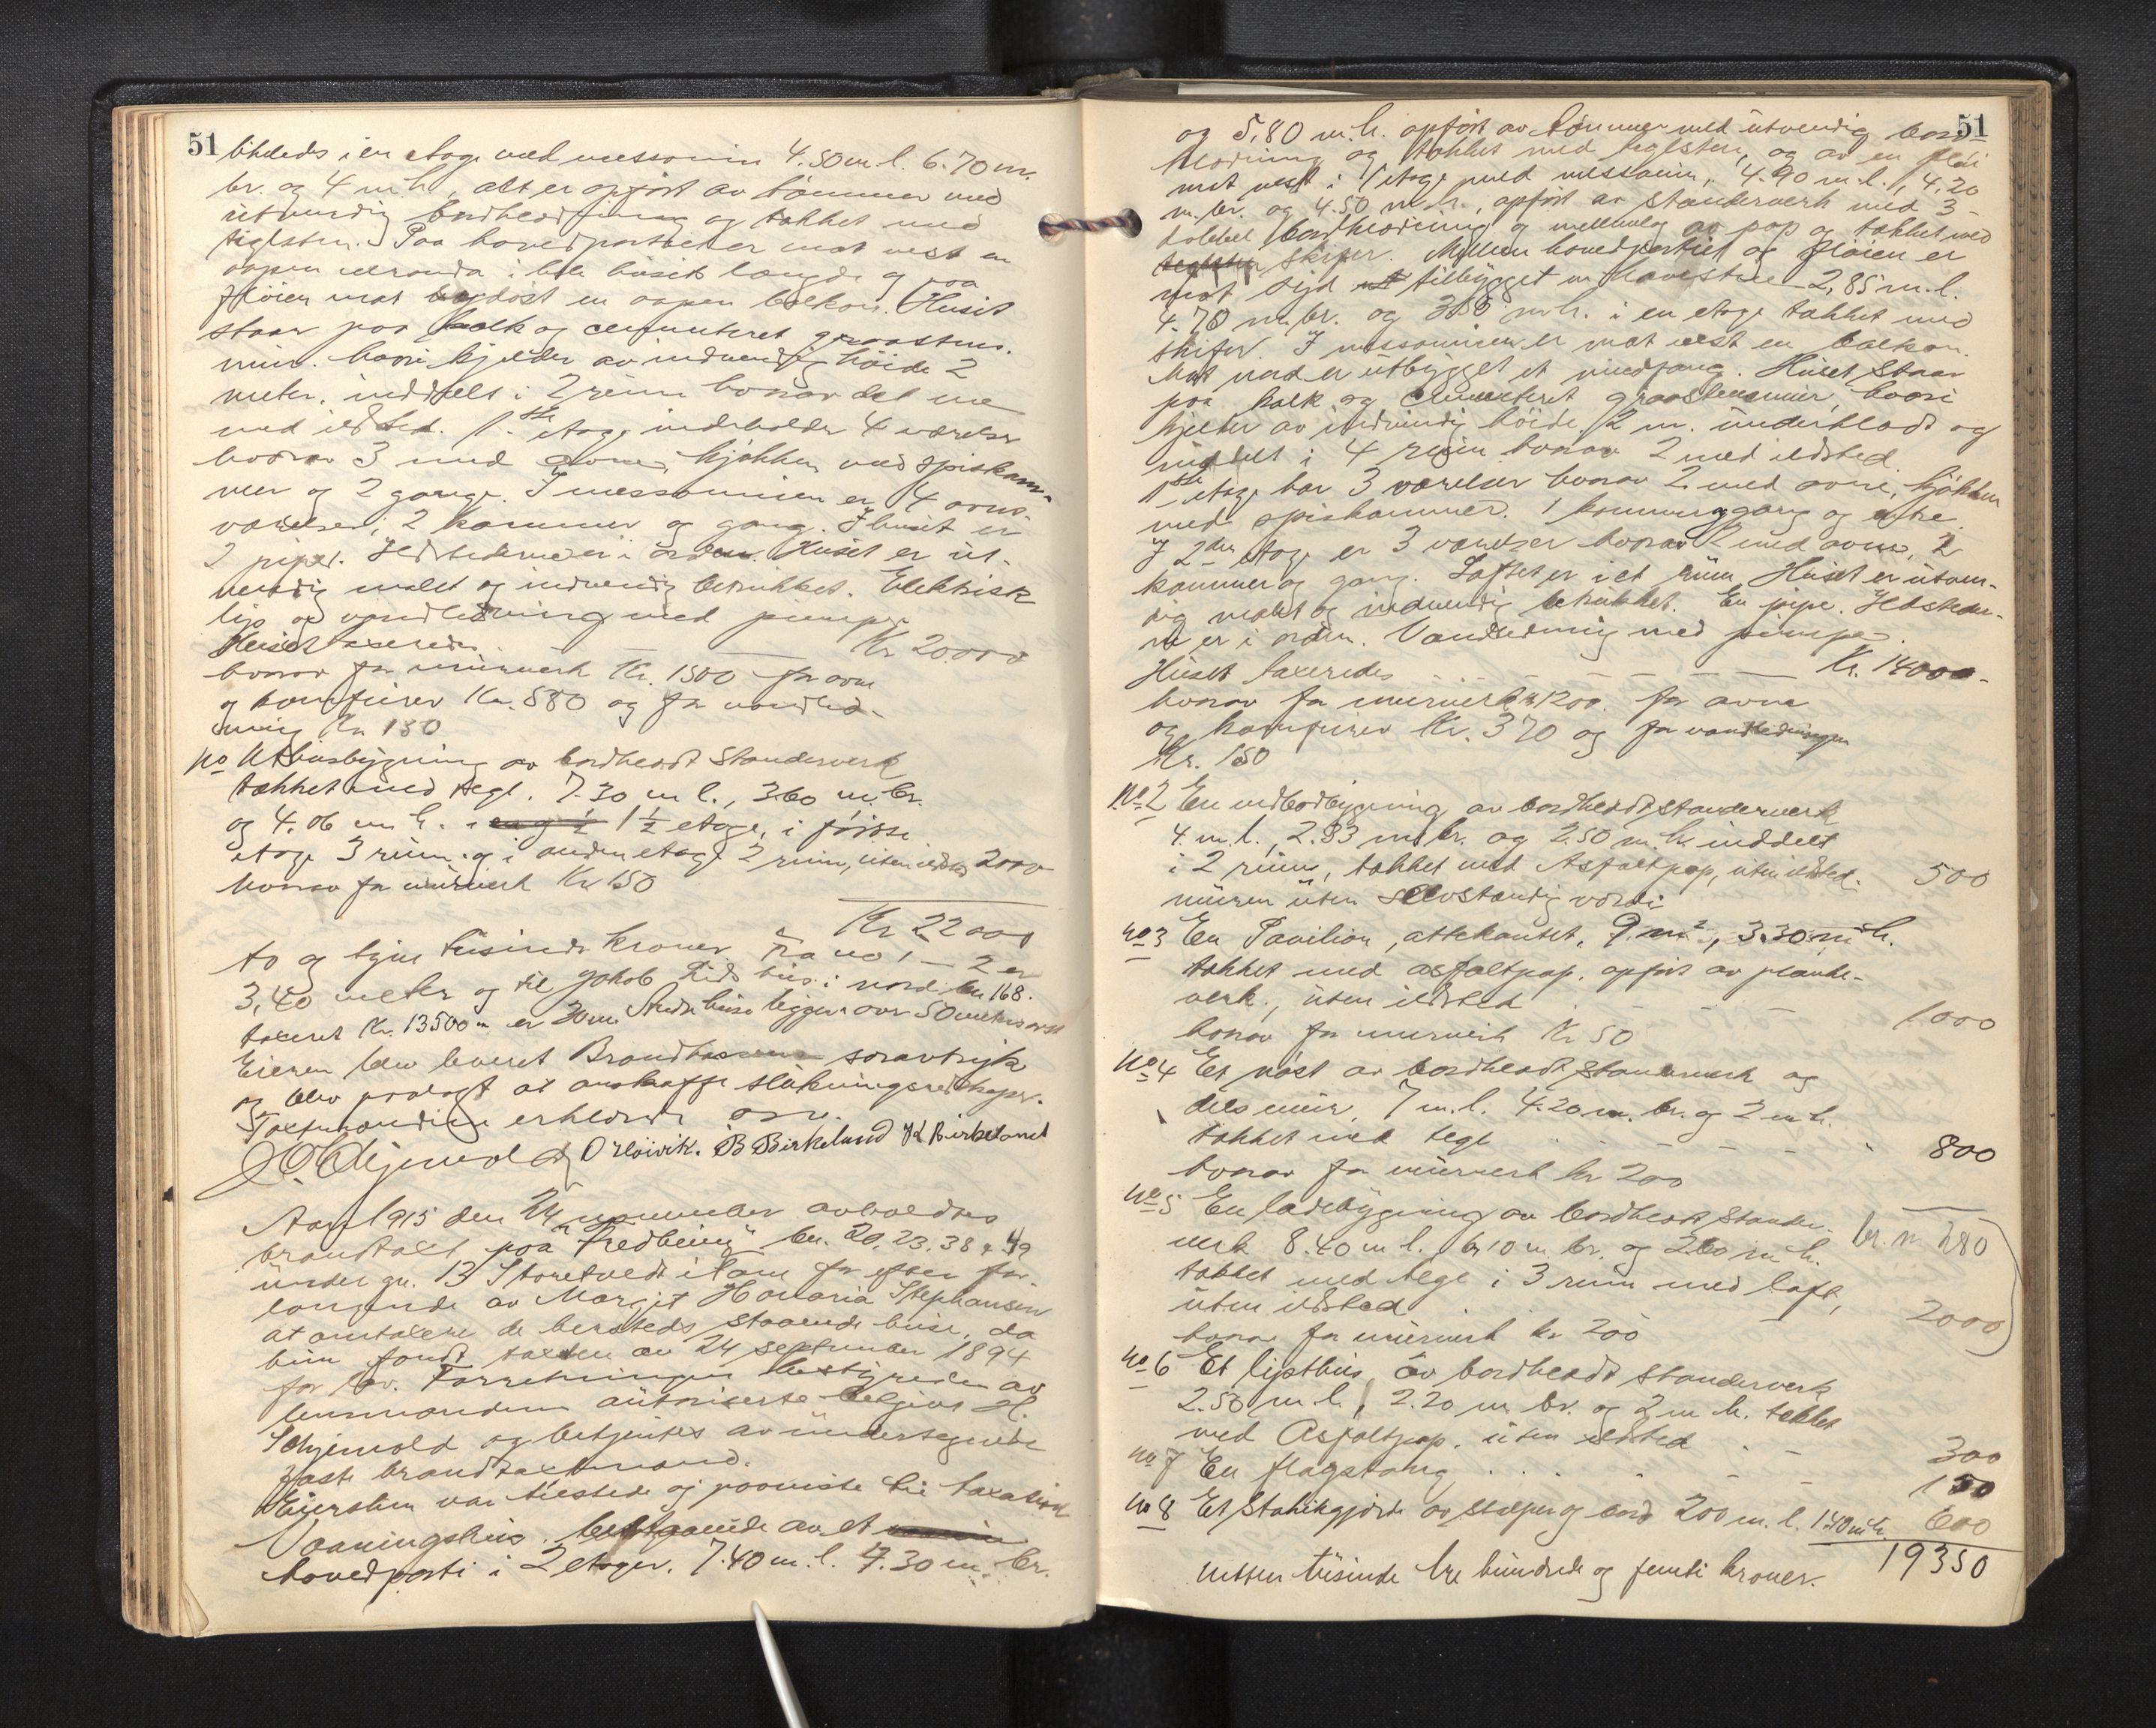 51
bikeleds i en etage med messanin 4.50 m l. 6.70 m.
br. og 4 m h, alt er opført av tømmer med
utvendig bordklædning og tækket med
teglsten. Paa hovedpartiet er mot vest en
aapen veranda i hele husets længde og paa
fløien mot sydøst en aapen balkon. Huset
staar paa kalk og cementeret graastens-
mur. hvori kjelder av indvendig høide 2
meter. inddelt i 2 rum hvorav det ene
med ildsted. 1ste etage indeholder 4 værelser
hvorav 3 med ovne, kjøkken med spiskam-
mer og 2 gange. I messaninen er 4 ovns-
værelser, 2 kammer og gang. I huset er
2 piper. Ildstederne er i orden. Huset er ut-
vendig malt og indvendig betrukket. Elektrisk
lys og vandledning med pumpe.
Huset taxeredes Kr 20000
hvorav for murverk Kr. 1500 for ovne
og komfurer Kr. 580 og for vandled-
ning Kr 150
No Uthusbygning av bordklædt standerverk
tækket med tegl. 7.30 m l., 3.60 m. br.
og 4.06 m h. i 1 1/2 etage, i første
etage 3 rum og i anden etage 2 rum, uten ildsted 2000
hvorav for murverk Kr 150
Kr 22000
to og tyve tusinde kroner. Fra no 1 – 2 er
3,40 meter og til Jakob Lids hus i nord bn 168.
taxeret Kr. 13500 er 30 m. Andre huse ligger over 50 meter væk
Eieren blev leveret Brandkassens soravtryk
og blev paalagt at anskaffe slukningsredskaper.
Taxtmændene erklærede osv.
O. Hjemvold O Høivik. B Birkeland K Birkeland
Aar 1915 den 24 november avholdtes
brandtaxt paa "Fredheim" bn. 20, 23, 38 & 49
under gn. 13 Storetvedt i Fane for efter for-
langende av Margit Honoria Stephansen
at omtaxere de hersteds staaende huse, da
hun fandt taxten av 24 september 1894
for lav. Forretningen bestyredes av
lensmandens autoriserte betjent H.
Hjemvold og betjentes av undertegnede
faste brandtaxtmænd.
Eiersken var tilstede og paaviste til taxation
Vaaningshus. bestaaende av et
hovedparti i 2 etager. 7.40 m. l. 7.30 m. br.
51
og 5,80 m.h. opført av tømmer med utvendig bord-
klædning og tækket med teglsten, og av en fløi
mot vest i 1 etage med messanin, 4.90 m. l., 4.20
m. br. og 4.50 m. h., opført av standerverk med 3-
dobbel bordklædning og mellemlag av pap og tækket med
skifer. Mellem hovedpartiet og fløien er
mot syd tilbygget en havestue 2,85 m. l.
4.70 m. br. og 3.50 m h. i en etage tækket med
skifer. I messaninen er mot vest en balkon.
Mot nord er utbygget et vindfang. Huset staar
paa kalk og cementeret graastensmur, hvori
kjelder av indvendig høide 2 m. underbladt og
inddelt i 4 rum hvorav 2 med ildsted.
1ste etage har 3 værelser hvorav 2 med ovne, kjøkken
med spiskammer. 1 kammer, gang og entre.
I 2den etage er 3 værelser hvorav 2 med ovne, 2
kammer og gang. Loftet er i et rum. Huset er utven-
dig malt og indvendig betrukket. En pipe. Ildsteder-
ne er i orden. Vandledning med pumpe.
Huset taxeredes Kr. 14000-
hvorav for murverk kr 1200. for ovne
og komfurer Kr. 370 og for vandledningen
Kr. 150
No 2 En vedbodbygning av bordklædt standerverk
4. m. l., 2.93 m. br. og 2.50 m. h. inddelt
i 2 rum, tækket med Asfaltpap, uten ildsted. 500
muren uten selvstændig værdi
No 3 En Pavilion, attekantet, 9 m2, 3.30 m h.
tækket med asfaltpap. opført av planke-
verk., uten ildsted 1000
hvorav for murverk Kr 50
No 4 Et nøst av bordklædt standerverk og
dels mur. 7 m. l. 4.20 m. br. og 2 m h.
tækket med tegl 800
hvorav for murverk kr 200
No 5 En ladebygning av bordklædt stander-
verk 8.40 m l. 6.10 m. br. og 2.60 m h. br. m 280
tækket med tegl i 3 rum med loft,
uten ildsted 2000
hvorav for murverk kr 200
No 6 Et lysthus av bordklædt standerverk
2.50 m l., 2.20 m br. og 2 m h. tækket
med Asfaltpap. uten ildsted 300
No 7 En flagstang 150
No 8 Et Stakitgjærde av stolper og bord 200 m. l. 1.40 m h. 600
19350
nitten tusinde tre hundrede og femti kroner.